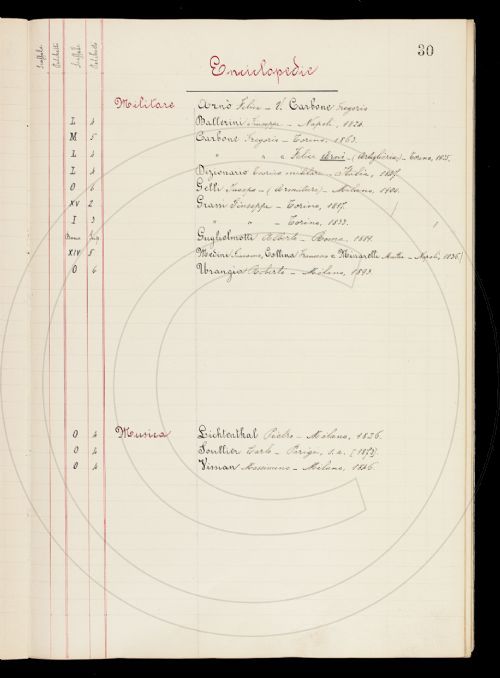 30
Scaffale Palchetti Scaffale Palchetto
Enciclopedie
Militare Arnò Felice – V. Carbone Gregorio
L 4 Ballerini Giuseppe – Napoli, 1824.
M 5 Carbone Gregorio – Torino, 1863.
L 4 " " e Felice Arnò – (Artiglieria) – Torino, 1835.
L 4 Dizionario storico militare – Italia, 1847.
O 6 Gelli Jacopo – (Armature) – Milano, 1900.
XV 2 Grassi Giuseppe – Torino, 1817.
I 3 " " – Torino, 1833.
Guglielmotti Alberto – Roma, 1889.
XIV 5 Medini Giacomo, Collina Francesco e Minarelli – Napoli, 1836
O 6 Vrangia Alberto – Milano, 1893
O 4 Musica Lichtenthal Pietro – Milano, 1836.
O 4 Soullier Carlo – Parigi, s. a. [1870].
O 4 Vissian Massimino – Milano, 1846.